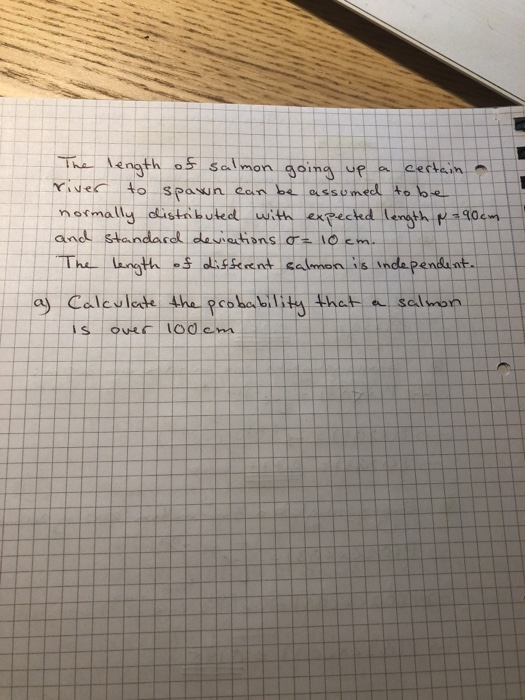 The length of salmon going up a certain
river to spawn can be assumed to be
normally distributed with expected length μ = 90cm
and standard deviations σ = 10 cm.
The length of different salmon is independent.
a) Calculate the probability that a salmon
is over 100cm